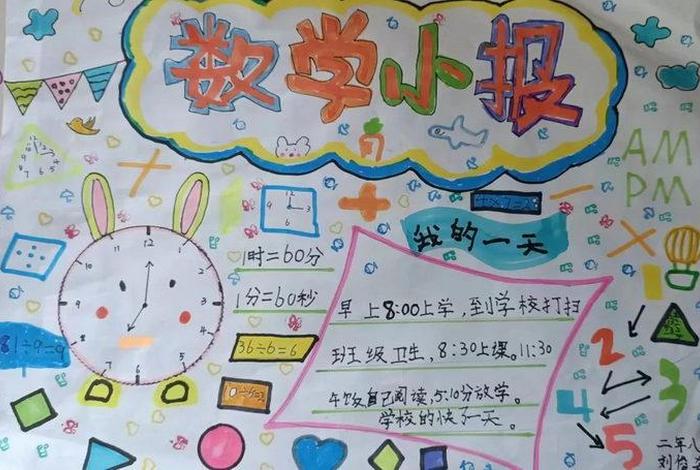 数学小报
AM
PM
12
3
6
我的一天
1时=60分
1分=60秒
早上8:00上学，到学校打扫
班级卫生，8:30上课。11:30
午饭自己阅读，5:10分放学。
学校的快了一天。
81÷9=9
36÷6=6
12
1
2
3
4
5
6
7
8
9
10
11
2
4
3
5
二年八